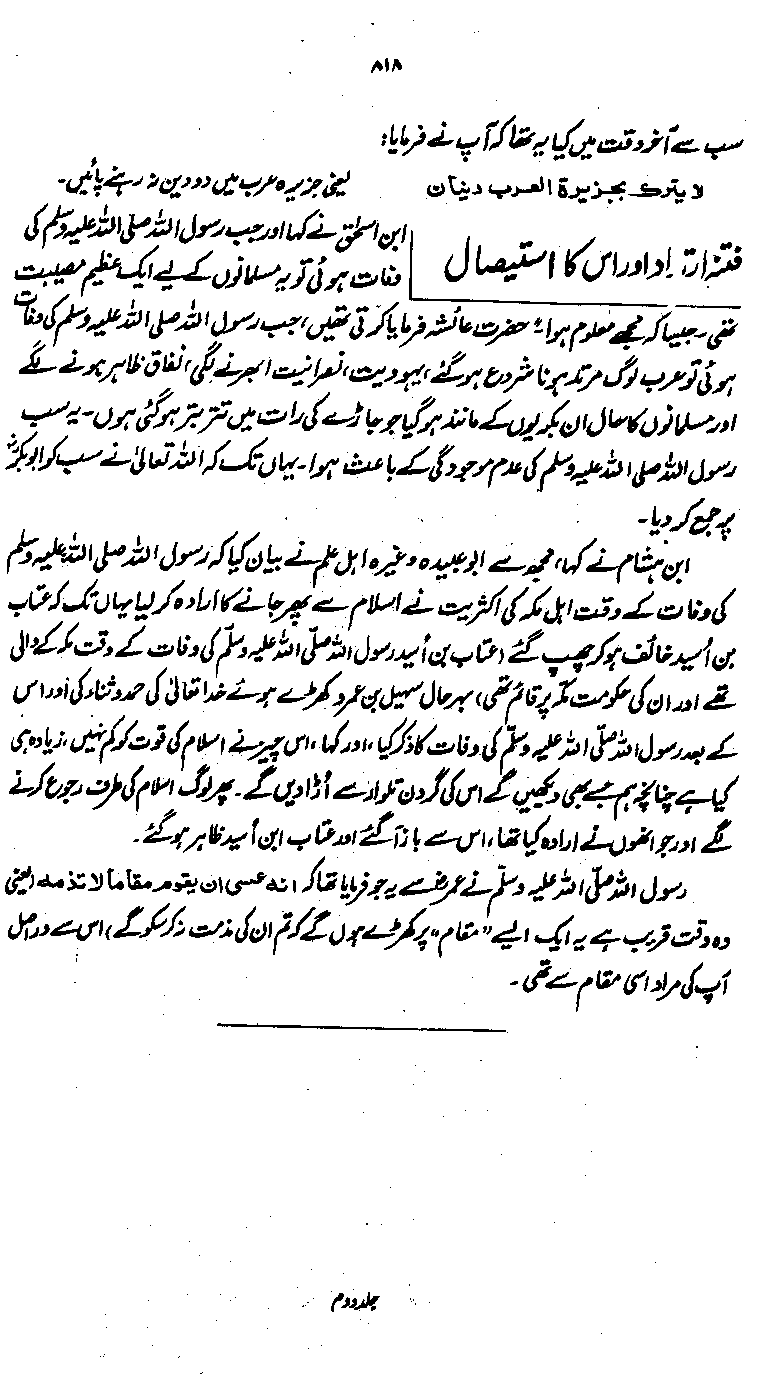 ۸۱۸
سب سے آخر وقت میں کیا یہ تھا کہ آپ نے فرمایا:
لا یترک بجزیرة العرب دینان
یعنی جزیرہ عرب میں دو دین نہ رہنے پائیں۔
فتنۂ ارتداد اور اس کا استیصال
ابن اسحٰق نے کہا اور جب رسول اللہ صلی اللہ علیہ وسلم کی
وفات ہوئی تو یہ مسلمانوں کے لیے ایک عظیم مصیبت
تھی۔ جیسا کہ مجھے معلوم ہوا ہے حضرت عائشہ فرمایا کرتی تھیں، جب رسول اللہ صلی اللہ علیہ وسلم کی وفات
ہوئی تو عرب لوگ مرتد ہونا شروع ہو گئے، یہودیت، نصرانیت ابھرنے لگی، نفاق ظاہر ہونے لگے
اور مسلمانوں کا حال ان بکریوں کے مانند ہو گیا جو جاڑے کی رات میں تتر بتر ہو گئی ہوں۔ یہ سب
رسول اللہ صلی اللہ علیہ وسلم کی عدم موجودگی کے باعث ہوا۔ یہاں تک کہ اللہ تعالیٰ نے سب کو ابوبکرؓ
پر جمع کر دیا۔
ابن ہشام نے کہا، مجھ سے ابو عبیدہ وغیرہ اہل علم نے بیان کیا کہ رسول اللہ صلی اللہ علیہ وسلم
کی وفات کے وقت اہل مکہ کی اکثریت نے اسلام سے پھر جانے کا ارادہ کر لیا یہاں تک کہ عتاب
بن اُسید خائف ہو کر چھپ گئے (عتاب بن اُسید رسول اللہ صلّی اللہ علیہ وسلّم کی وفات کے وقت مکہ کے والی
تھے اور ان کی حکومت مکہ پر قائم تھی) بہرحال سہیل بن عمرو کھڑے ہوئے خدا تعالیٰ کی حمد و ثناء کی اور اس
کے بعد رسول اللہ صلّی اللہ علیہ وسلّم کی وفات کا ذکر کیا، اور کہا، اس چیز نے اسلام کی قوت کو کم نہیں، زیادہ ہی
کیا ہے چنانچہ ہم جسے بھی دیکھیں گے اس کی گردن تلوار سے اُڑا دیں گے۔ پھر لوگ اسلام کی طرف رجوع کرنے
لگے اور جو انھوں نے ارادہ کیا تھا، اس سے باز آ گئے اور عتاب ابن اُسید ظاہر ہو گئے۔
رسول اللہ صلّی اللہ علیہ وسلّم نے عمرؓ سے یہ جو فرمایا تھا کہ انه عسى ان یقوم مقاماً لا تذمه (یعنی
وہ وقت قریب ہے یہ ایک ایسے "مقام" پر کھڑے ہوں گے کہ تم ان کی مذمت نہ کر سکو گے) اس سے دراصل
آپ کی مراد اسی مقام سے تھی۔
جلد دوم